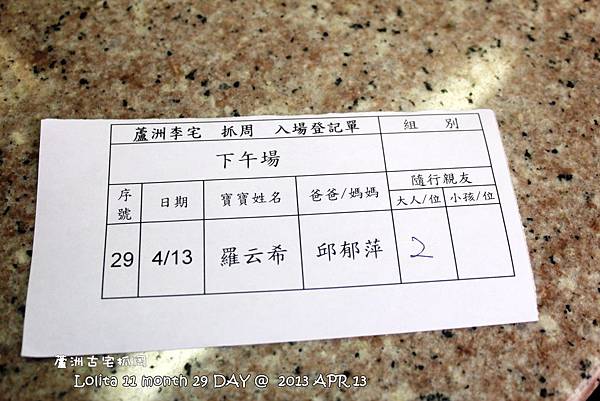 蘆洲李宅 抓周 入場登記單 組 別
下午場
隨行親友
序號 日期 寶寶姓名 爸爸/媽媽 大人/位 小孩/位
29 4/13 羅云希 邱郁萍 2
蘆洲古宅抓周
Lolita 11 month 29 DAY @ 2013 APR 13